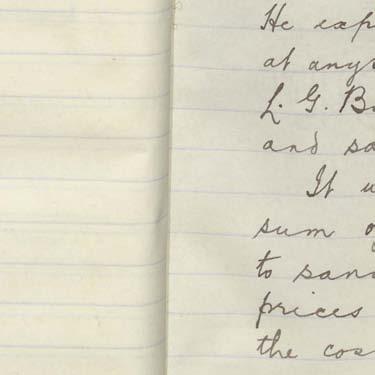 He exp
at any
L. G. B
and sa
It u
sum o
to san
prices
the cos